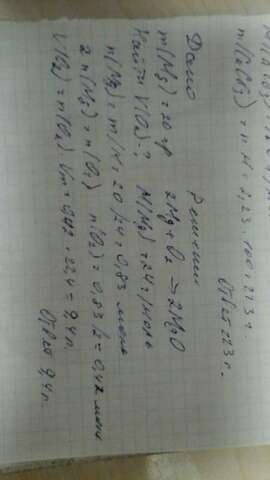 m(CaCO3) = n·M = 2,23·100 = 223 г.
Ответ 223 г.
Дано Решение
m(Mg) = 20 гр 2Mg + O2 → 2MgO
Найти V(O2) - ? M(Mg) = 24 г/моль
n(Mg) = m/M = 20/24 = 0,83 моль
2 n(Mg) = n(O2) n(O2) = 0,83/2 = 0,42 моль
V(O2) = n(O2)·Vm = 0,42·22,4 = 9,4 л.
Ответ 9,4 л.